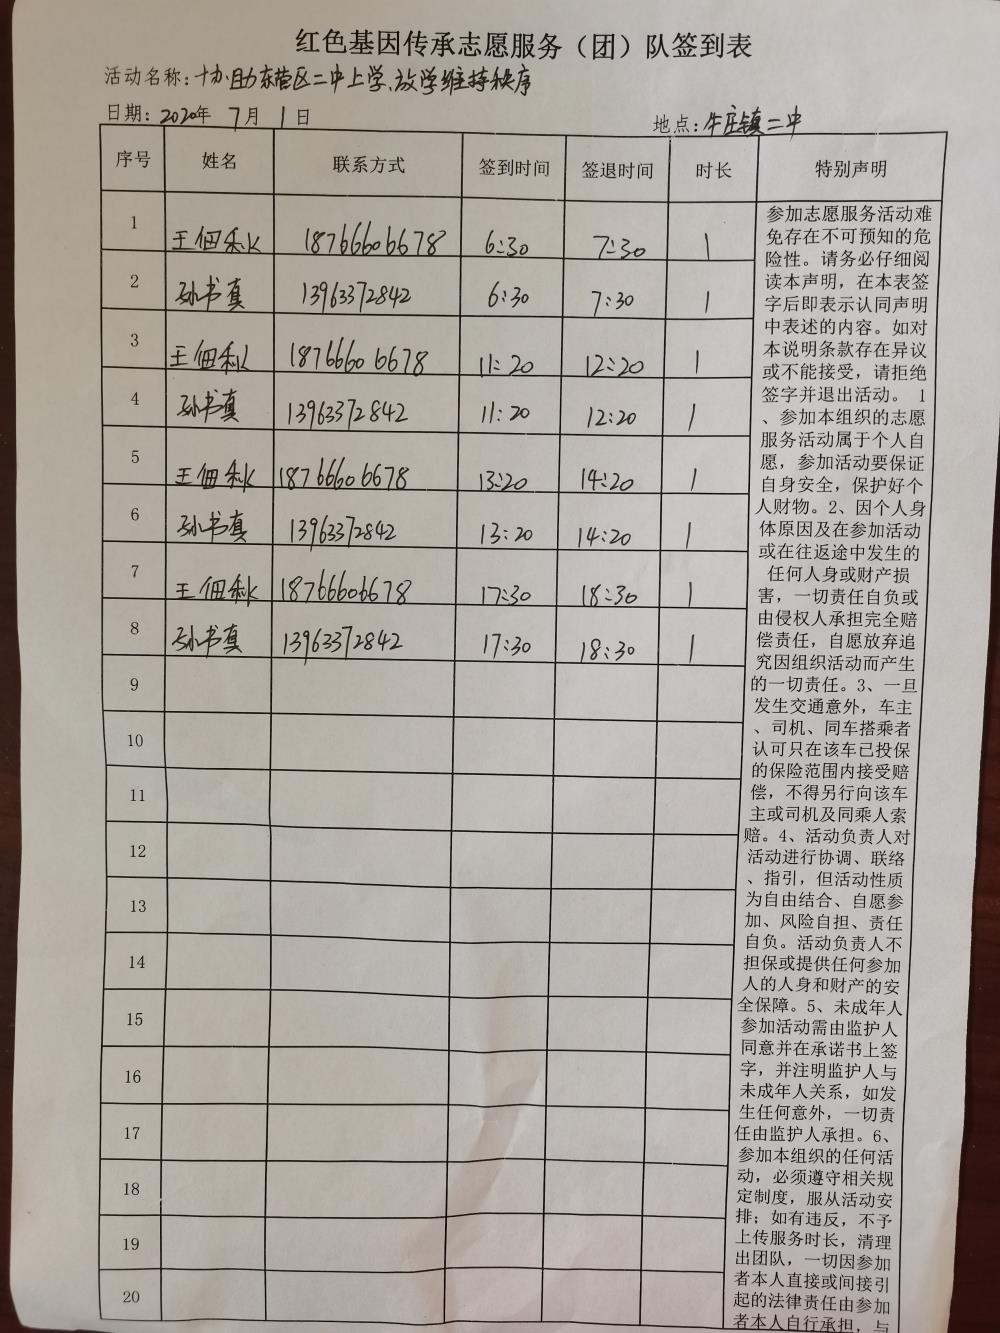 红色基因传承志愿服务（团）队签到表
活动名称：协助东营区二中上学、放学维持秩序
日期：2020年 7月 1日 地点：牛庄镇二中
序号 姓名 联系方式 签到时间 签退时间 时长 特别声明
1 王佃秋 18766606678 6:30 7:30 1
2 孙书真 13963372842 6:30 7:30 1
3 王佃秋 18766606678 11:20 12:20 1
4 孙书真 13963372842 11:20 12:20 1
5 王佃秋 18766606678 13:20 14:20 1
6 孙书真 13963372842 13:20 14:20 1
7 王佃秋 18766606678 17:30 18:30 1
8 孙书真 13963372842 17:30 18:30 1
9
10
11
12
13
14
15
16
17
18
19
20
参加志愿服务活动难
免存在不可预知的危
险性。请务必仔细阅
读本声明，在本表签
字后即表示认同声明
中表述的内容。如对
本说明条款存在异议
或不能接受，请拒绝
签字并退出活动。 1
、参加本组织的志愿
服务活动属于个人自
愿，参加活动要保证
自身安全，保护好个
人财物。2、因个人身
体原因及在参加活动
或在往返途中发生的
任何人身或财产损
害，一切责任自负或
由侵权人承担完全赔
偿责任，自愿放弃追
究因组织活动而产生
的一切责任。3、一旦
发生交通意外，车主
、司机、同车搭乘者
认可只在该车已投保
的保险范围内接受赔
偿，不得另行向该车
主或司机及同乘人索
赔。4、活动负责人对
活动进行协调、联络
、指引，但活动性质
为自由结合、自愿参
加、风险自担、责任
自负。活动负责人不
担保或提供任何参加
人的人身和财产的安
全保障。5、未成年人
参加活动需由监护人
同意并在承诺书上签
字，并注明监护人与
未成年人关系，如发
生任何意外，一切责
任由监护人承担。6、
参加本组织的任何活
动，必须遵守相关规
定制度，服从活动安
排；如有违反，不予
上传服务时长，清理
出团队，一切因参加
者本人直接或间接引
起的法律责任由参加
者本人自行承担，与